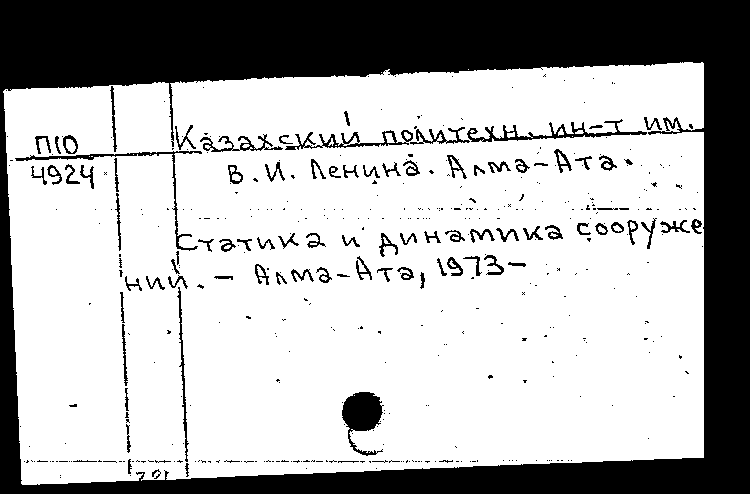 П10
4924
Казахский политехн. ин-т им.
В.И. Ленина. Алма-Ата.
Статика и динамика сооруже
ний. – Алма-Ата, 1973–